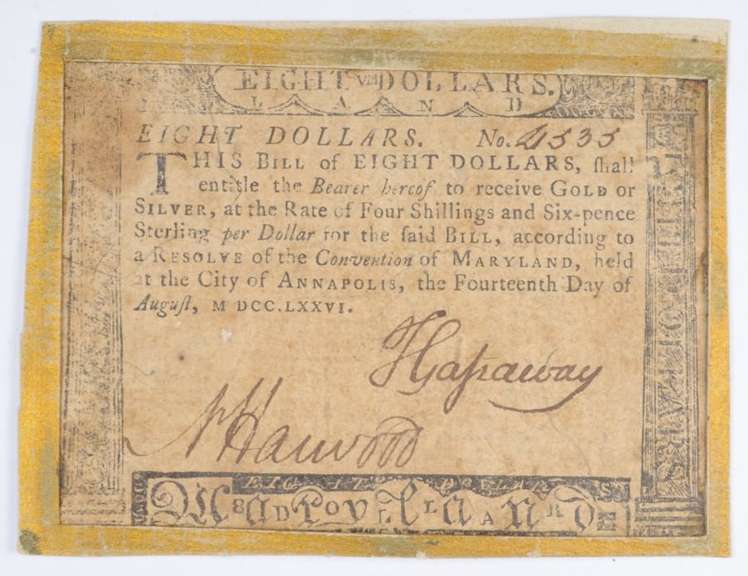 EIGHT VIII DOLLARS.
L A N D
EIGHT DOLLARS. No. 4535
THIS BILL of EIGHT DOLLARS, ſhall
entitle the Bearer hereof to receive GOLD or
SILVER, at the Rate of Four Shillings and Six-pence
Sterling per Dollar for the ſaid BILL, according to
a RESOLVE of the Convention of MARYLAND, held
at the City of ANNAPOLIS, the Fourteenth Day of
Auguſt, M DCC.LXXVI.
J Haſsaway
N Harwood